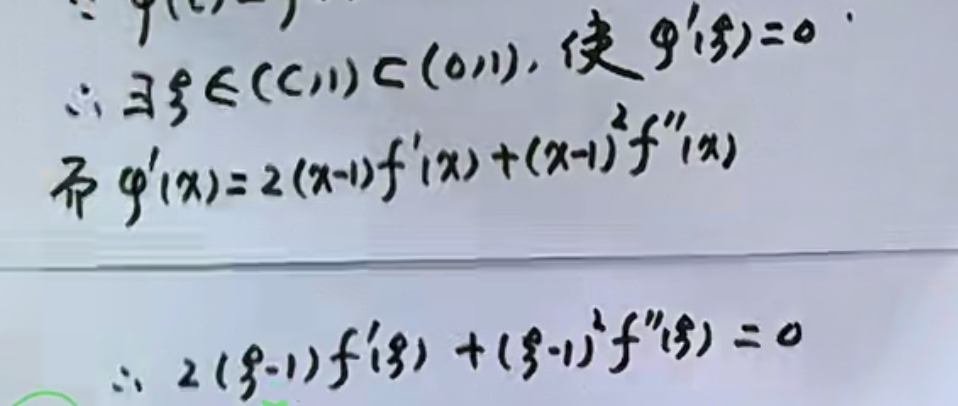 ∵ φ(c)=
∴ ∃ξ∈(c,1)⊂(0,1), 使 φ'(ξ)=0
而 φ'(x)=2(x-1)f'(x)+(x-1)²f''(x)
∴ 2(ξ-1)f'(ξ)+(ξ-1)²f''(ξ)=0